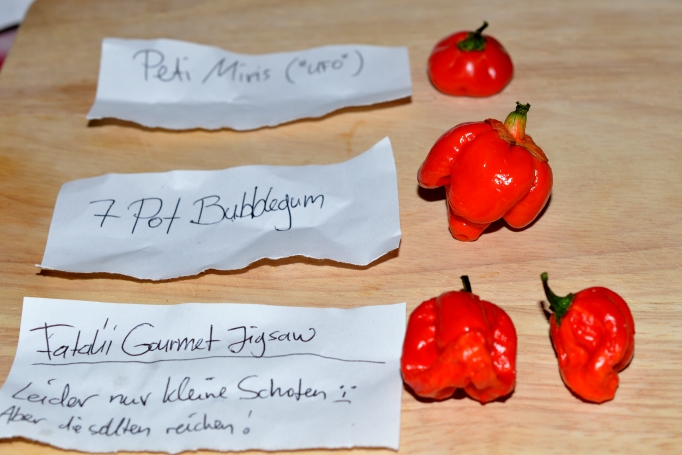 Peti Miris ("UFO")
7 Pot Bubblegum
Fatalii Gourmet Jigsaw
Leider nur kleine Schoten :(
Aber die sollten reichen!